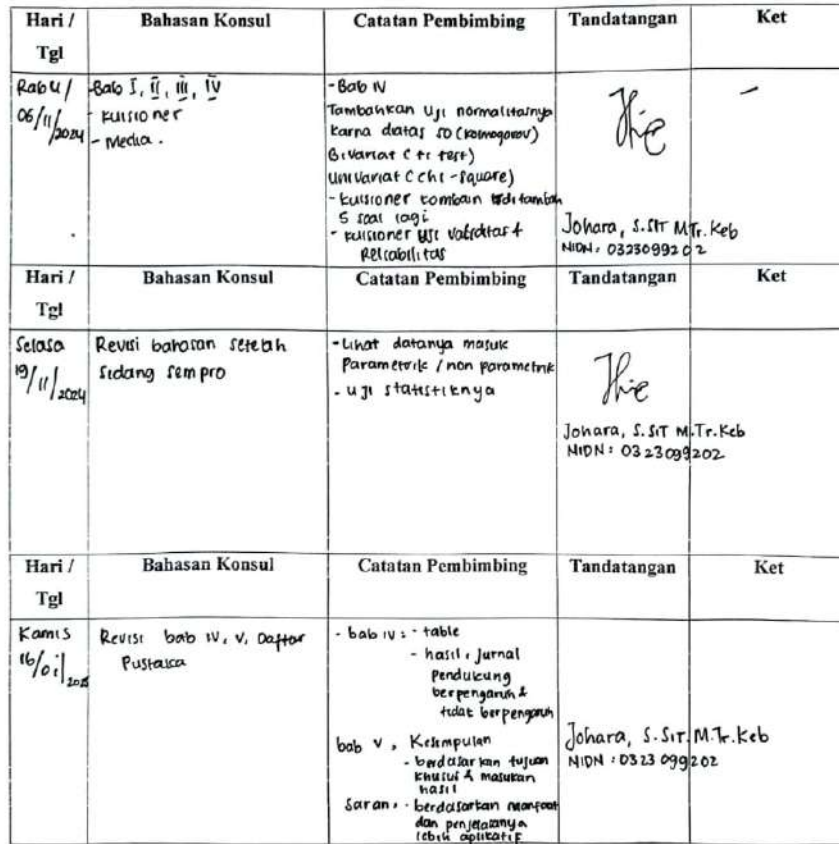 Hari / Bahasan Konsul Catatan Pembimbing Tandatangan Ket
Tgl
Rabu / - Bab I, II, III, IV - Bab IV
06/11/2024 - kuisioner Tambahkan Uji normalitasnya
- Media. karna diatas 50 (kolmogorov)
Bivariat ( t test)
Univariat ( chi-square)
- kuisioner ditambah
5 soal lagi
- kuisioner uji validitas +
Reliabilitas
Johara, S.SIT MTr.Keb
NIDN: 0323099202
Hari / Bahasan Konsul Catatan Pembimbing Tandatangan Ket
Tgl
Selasa Revisi bahasan setelah - Lihat datanya masuk
19/11/2024 sidang sempro Parametrik / non parametrik
- uji statistiknya
Johara, S.SIT M.Tr.Keb
NIDN: 0323099202
Hari / Bahasan Konsul Catatan Pembimbing Tandatangan Ket
Tgl
Kamis Revisi bab IV, V, Daftar - bab IV : - table
16/01/ Pustaka - hasil, Jurnal
Pendukung
berpengaruh &
tidak berpengaruh
bab V, Kesimpulan
- berdasarkan tujuan
khusus & masukan
hasil
Saran, - berdasarkan manfaat
dan penjelasanya
lebih aplikatif
Johara, S.SIT.M.Tr.Keb
NIDN : 0323 099202